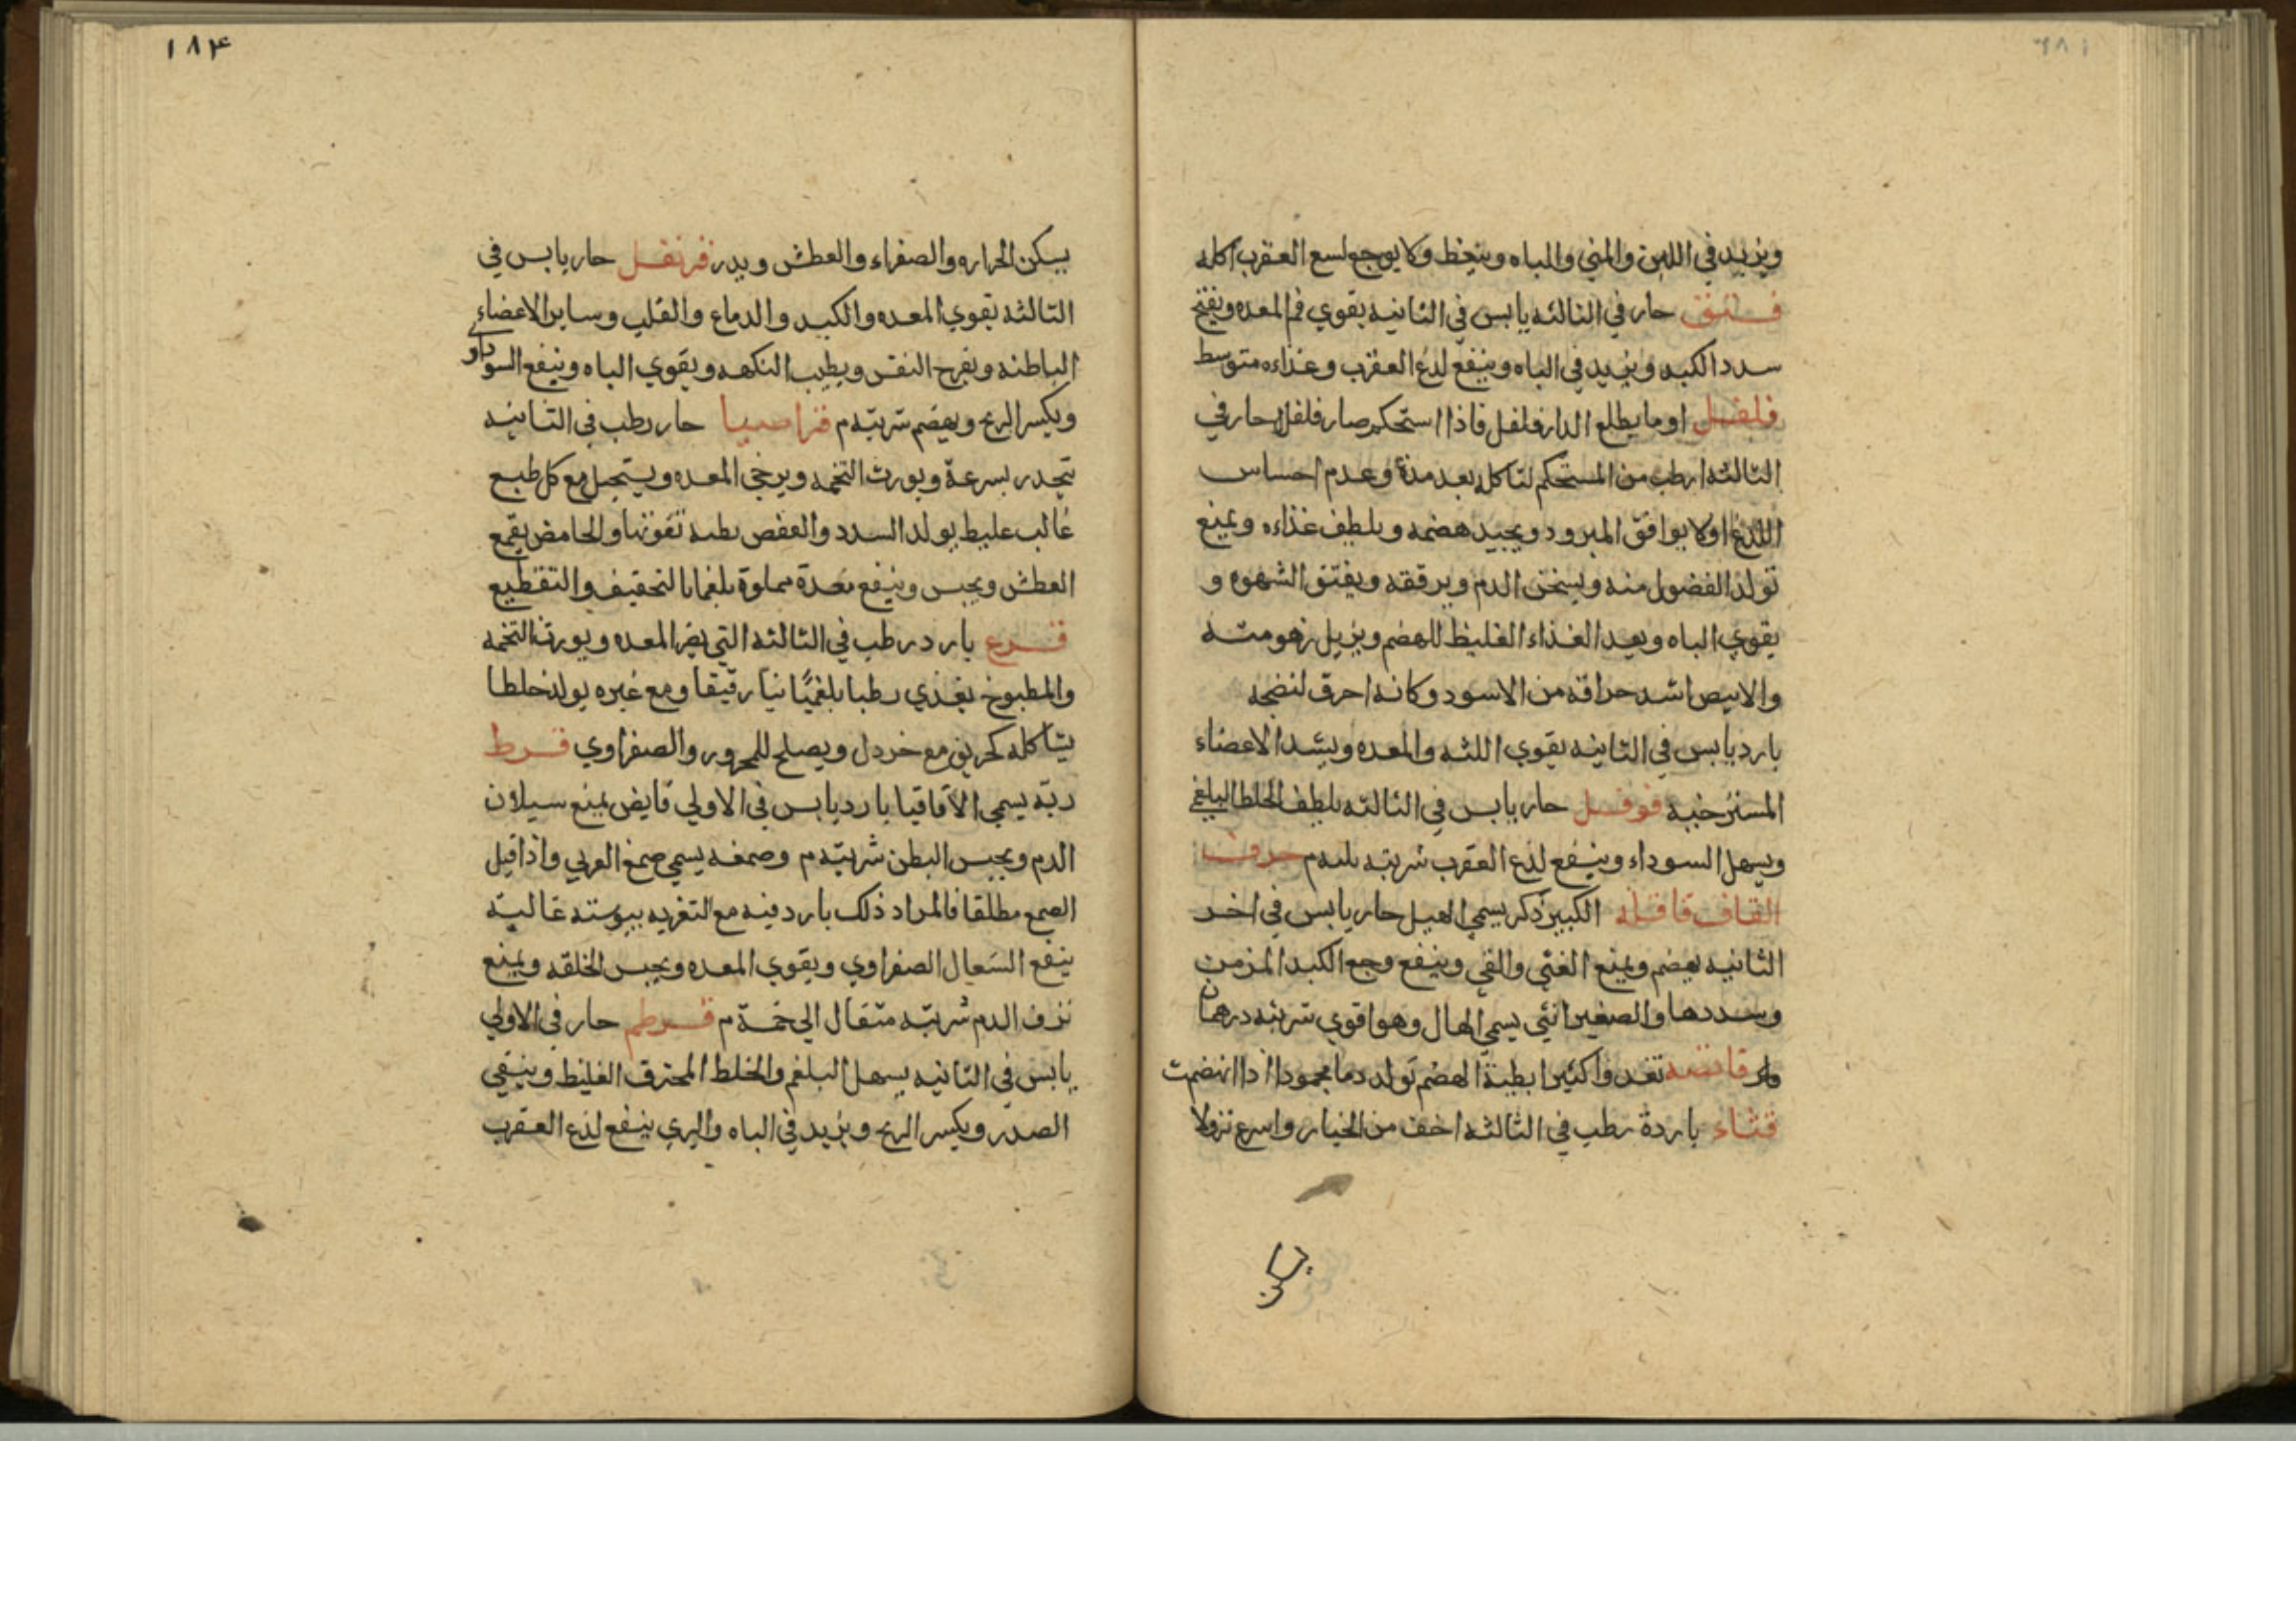 ويزيد في اللبن والمني والباه وينعظ ولا يوجع لسع العقرب اكله
فستق حار في الثالثه يابس في الثانيه يقوي فم المعده ويفتح
سدد الكبد ويزيد في الباه وينفع لدغ العقرب وغذاءه متوسط
فلفل اوما يطلع الدار فلفل فاذا استحكم صار فلفل حار في
الثالثه ارطب من المستحكم لتاكله بعد مدة وعدم احساس
اللذع اولا يوافق المبرود ويجيد هضمه ويلطف غذاءه ويمنع
تولد الفضول منه ويسخن الدم ويرققه ويفتق الشهوه و
يقوي الباه ويعد الغذاء الغليظ للهضم ويزيل زهومته
والابيض اشد حراقه من الاسود وكانه احرق لنضجه
بارد يابس في الثانيه يقوي اللثه والمعده ويشد الاعضاء
المسترخيه فوفل حار يابس في الثالثه يلطف الخلط البلغمي
ويسهل السوداء وينفع لدغ العقرب شربته م حرف
القاف قاقله الكبير ذكر يسمي الهيل حار يابس في اخر
الثانيه يهضم ويمنع الغثي والقي وينفع وجع الكبد المزمن
وسددها والصغير انثي يسمي الهال وهو اقوي شربته درهمان
قانصه تغدوا كثيرا بطية الهضم تولد دما محمودا اذا انهضمت
قثاء باردة رطب في الثالثه اخف من الخيار واسرع نزولا
يسكن
١٨۴
يسكن الحراره والصفراء والعطش ويدر قرنفل حار يابس في
الثالثه يقوي المعده والكبد والدماغ والقلب وساير الاعضاء
الباطنه ويفرح النفس ويطيب النكهه ويقوي الباه وينفع السوداوي
ويكسر الريح ويهضم شربته م قراصيا حار رطب في الثانيه
تتحدر بسرعة ويورث التخمه ويرخي المعده ويستحيل مع كل طبع
غالب غليظ يولد السدد والعفص بطيه نفوذها والحامض يقمع
العطش ويحبس وينفع معدة مملوة بلغما بالتجفيف والتقطيع
قرع بارد رطب في الثالثه التي يضر المعده ويورث التخمه
والمطبوخ يغذي رطبا بلغميا نيا رقيقا ومع غيره يولد خلطا
يشاكله كحريف مع خردل ويصلح للمحرور والصفراوي قرط
ربه يسمي الاقاقيا بارد يابس في الاولي قابض يمنع سيلان
الدم ويحبس البطن شربته م وصمغه يسمي صمغ العربي واذا قيل
الصمغ مطلقا فالمراد ذلك بارد فيه مع التغريه يبوسته غالبة
ينفع السعال الصفراوي ويقوي المعده ويحبس الخلقه ويمنع
نزف الدم شربته مثقال الي خمسة م قرطم حار في الاولي
يابس في الثانيه يسهل البلغم والخلط المحترق الغليظ وينقي
الصدر ويكسر الريح ويزيد في الباه والبري ينفع لدغ العقرب